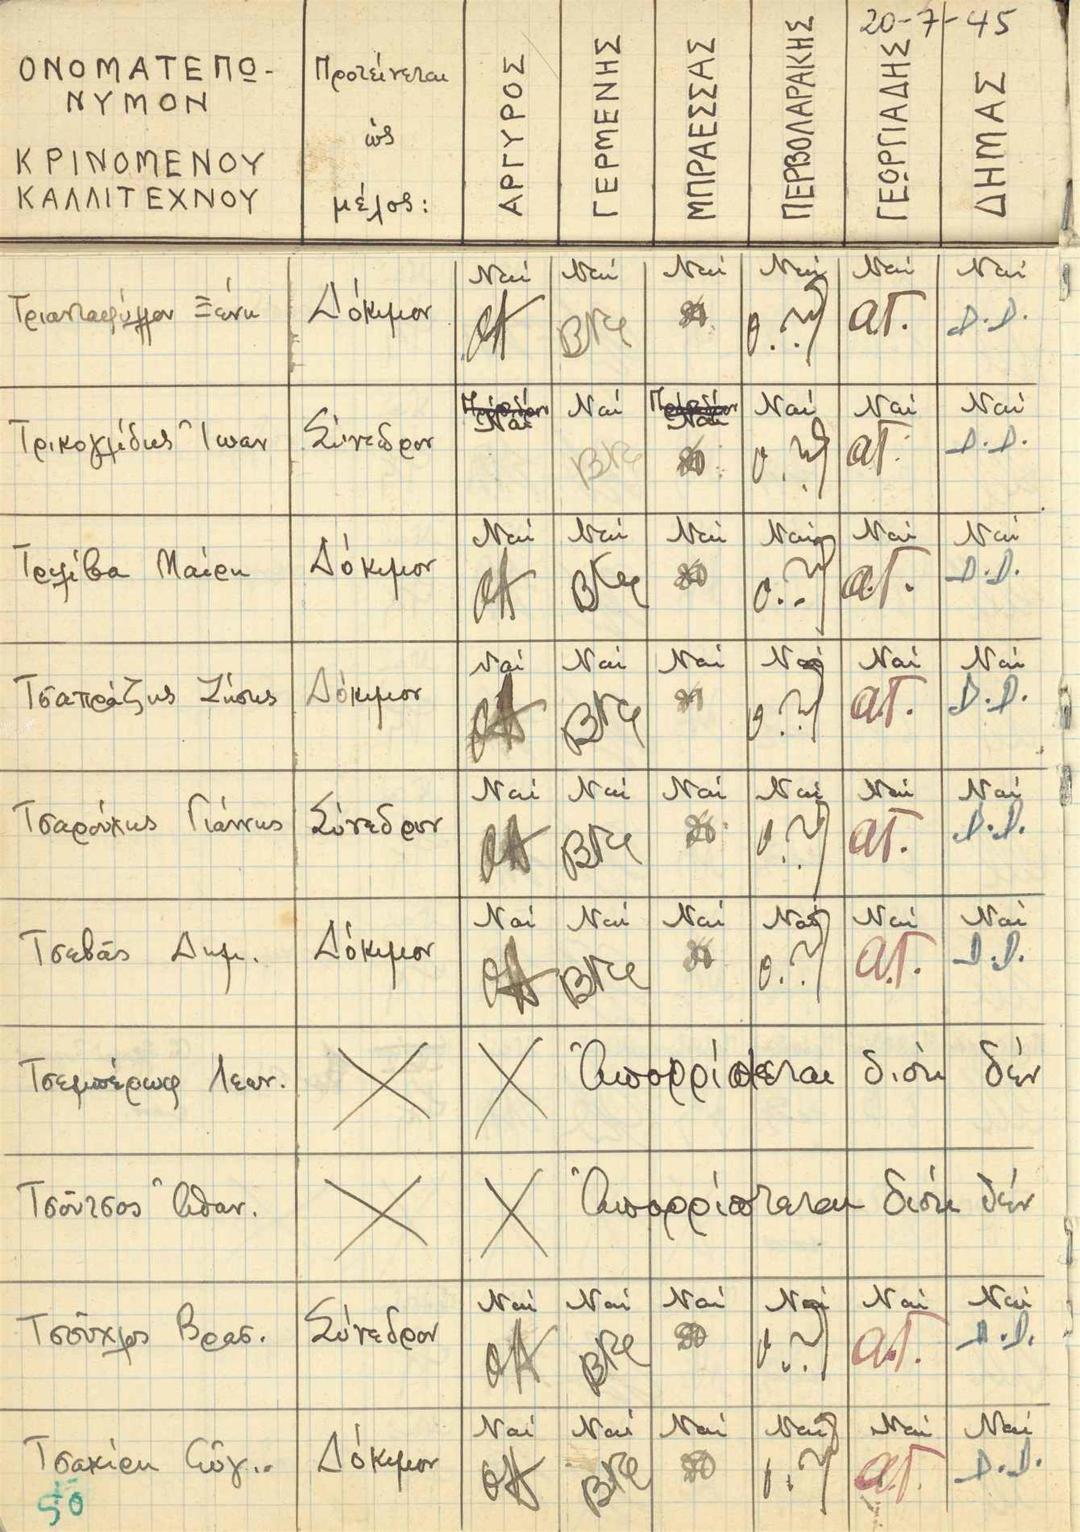 20-7-45
ΟΝΟΜΑΤΕΠΩ-
ΝΥΜΟΝ
ΚΡΙΝΟΜΕΝΟΥ
ΚΑΛΛΙΤΕΧΝΟΥ
Προτείνεται
ὡς
μέλος:
ΑΡΓΥΡΟΣ
ΓΕΡΜΕΝΗΣ
ΜΠΡΑΕΣΣΑΣ
ΠΕΡΒΟΛΑΡΑΚΗΣ
ΓΕΩΡΓΙΑΔΗΣ
ΔΗΜΑΣ
Τριανταφύλλου Ξένη Δόκιμον Ναί Ναί Ναί Ναί Ναί Ναί
ΟΑ ΒΓε Α.Γ. Δ.Δ.
Τρικογλίδης Ἰωαν Σύνεδρον Ναί Ναί Ναί Ναί Ναί Ναί
ΒΓε Α.Γ. Δ.Δ.
Μαίρη Δόκιμον Ναί Ναί Ναί Ναί Ναί Ναί
ΟΑ ΒΓε Α.Γ. Δ.Δ.
Τσαπράζης Ζήσης Δόκιμον Ναί Ναί Ναί Ναί Ναί Ναί
ΟΑ ΒΓε Α.Γ. Δ.Δ.
Τσαρούχης Γιάννης Σύνεδρον Ναί Ναί Ναί Ναί Ναί Ναί
ΟΑ ΒΓε Α.Γ. Δ.Δ.
Τσεβᾶς Δημ. Δόκιμον Ναί Ναί Ναί Ναί Ναί Ναί
ΟΑ ΒΓε Α.Γ. Δ.Δ.
Τσεμπέρωφ Λεων. Ἀπορρίπτεται διότι δέν
Τσοῦτσος Ἀθαν. Ἀπορρίπτεται διότι δέν
Τσοῦχλος Βρασ. Σύνεδρον Ναί Ναί Ναί Ναί Ναί Ναί
ΟΑ ΒΓε Α.Γ. Δ.Δ.
Τσακίρη Εὐγ.. Δόκιμον Ναί Ναί Ναί Ναί Ναί Ναί
ΟΑ ΒΓε Α.Γ. Δ.Δ.
50